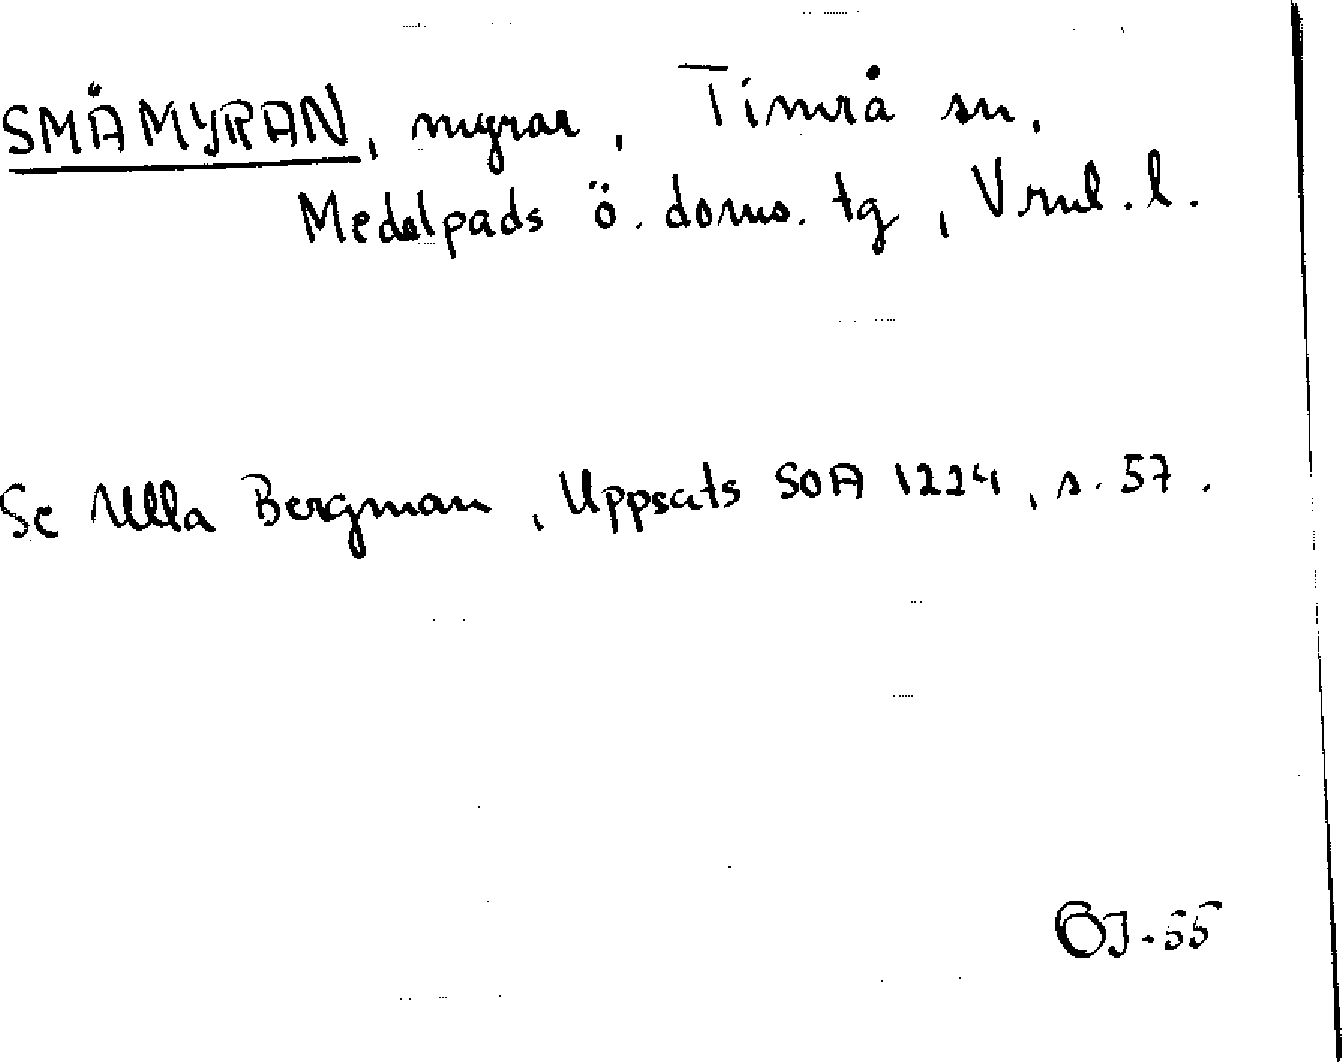 SMÅMYRAN, myrar, Timrå sn.
Medelpads ö. doms. tg, Vrnl. l.
Se Ulla Bergman, Uppsats SOA 1224, s. 57.
OJ-55